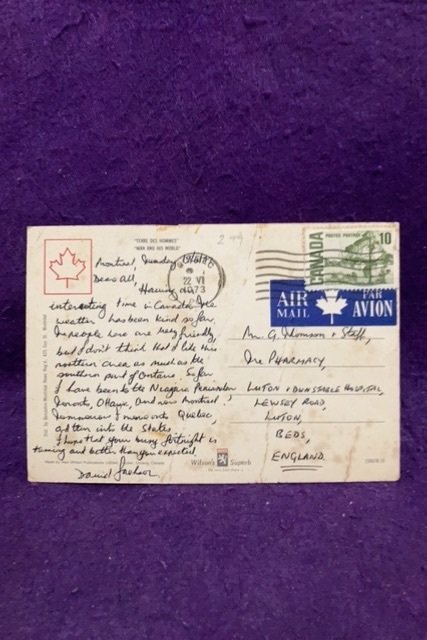 "TERRE DES HOMMES"
"MAN AND HIS WORLD"
Montreal, Tuesday
Dear All,
Having an
interesting time in Canada. The
weather has been kind so far.
The people here are very friendly,
but I don't think that I like this
northern area as much as the
southern part of Ontario. So far
I have been to the Niagara Peninsular
Toronto, Ottawa, and now Montreal,
Tomorrow I move onto Quebec,
and then into the States.
I hope that your busy fortnight is
turning out better than you expected.
David Jackson
22 VI
1973
CANADA
POSTES POSTAGE
10
AIR
MAIL
PAR
AVION
Mr. G. Thomson & Staff,
The PHARMACY,
LUTON & DUNSTABLE HOSPITAL,
LEWSEY ROAD,
LUTON,
BEDS,
ENGLAND.
Wilson's Superb